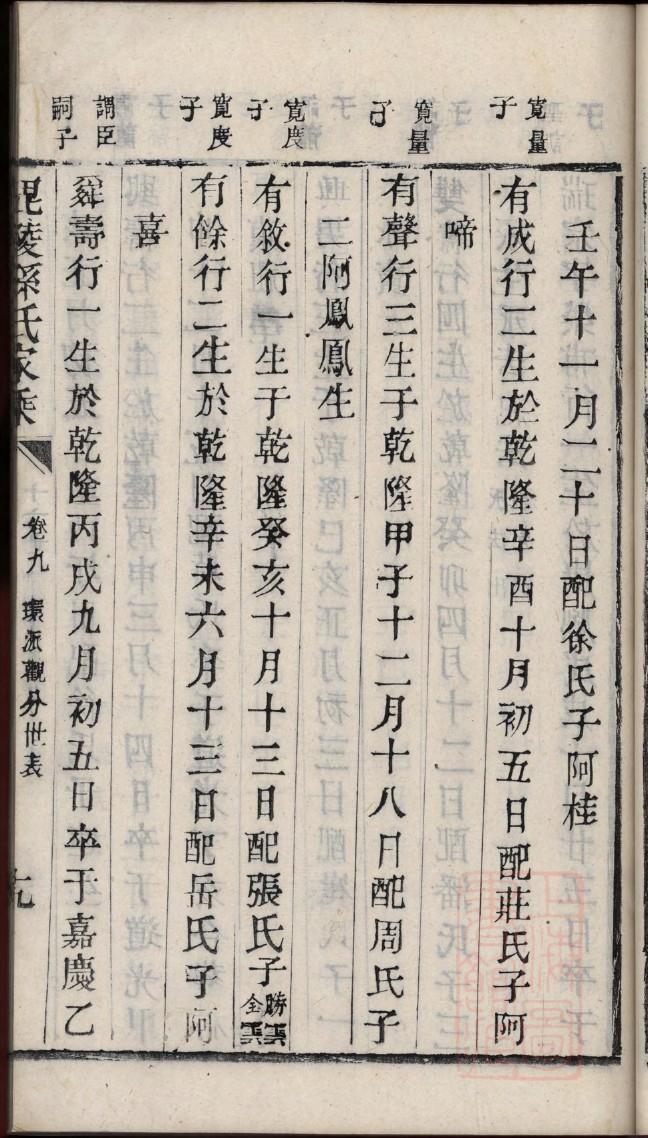 壬午十一月二十日配徐氏子阿桂
寬量
子
有成行二生於乾隆辛酉十月初五日配莊氏子阿
啼
寬量
子
有聲行三生于乾隆甲子十二月十八日配周氏子
二阿鳳鳳生
寬度
子
有敘行一生于乾隆癸亥十月十三日配張氏子勝
全
寬度
子
有餘行二生於乾隆辛未六月十三日配岳氏子阿
喜
謂臣
嗣子
壽行一生於乾隆丙戌九月初五日卒于嘉慶乙
毘陵孫氏家乘
卷九
環派觀分世表
九